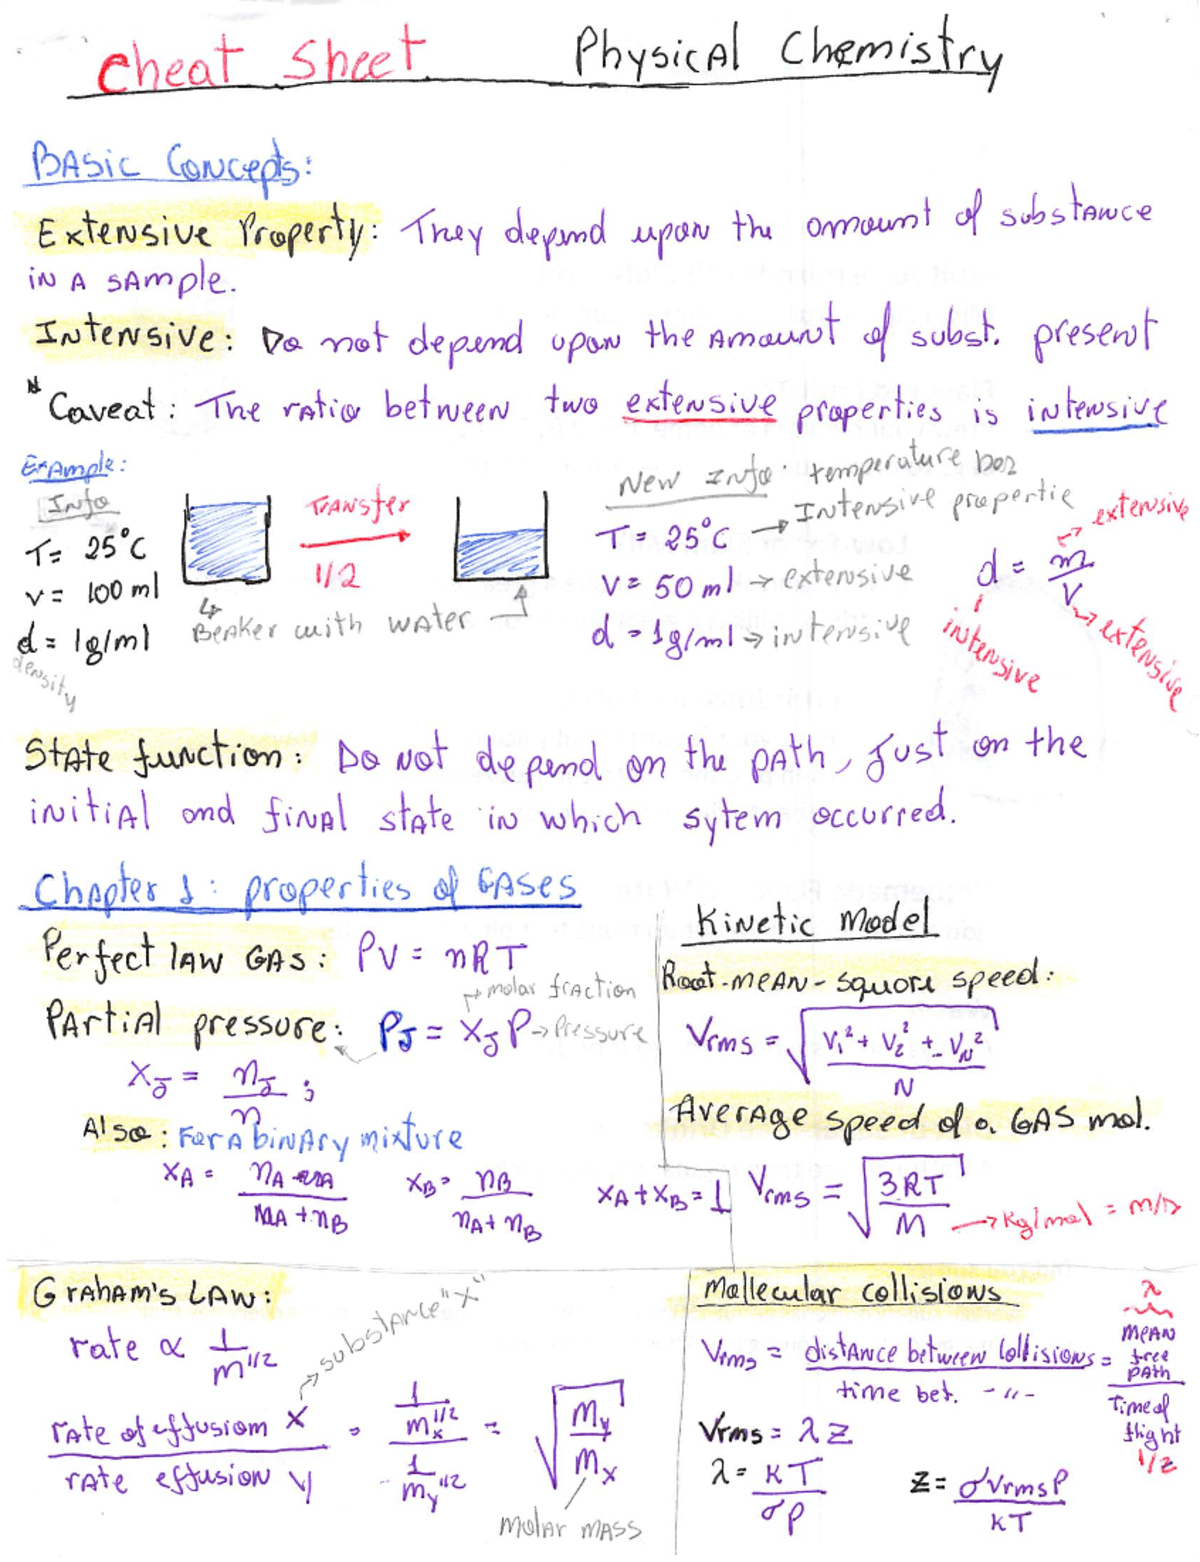 Cheat Sheet Physical Chemistry
Basic Concepts:
Extensive Property: They depend upon the amount of substance
in a sample.
Intensive: Do not depend upon the amount of subst. present
* Caveat: The ratio between two extensive properties is intensive
Example:
Info
T = 25°C
V = 100 ml
d = 1g/ml
density
Transfer
1/2
Beaker with water
New Info: temperature
Intensive propertie
T = 25°C
V = 50 ml → extensive
d = 1g/ml → intensive
d = m/V
extensive
extensive
intensive
State function: Do not depend on the path, just on the
initial and final state in which sytem occurred.
Chapter 1: properties of Gases
Perfect law Gas: PV = nRT
molar fraction
Partial pressure: PJ = XJ P → Pressure
XJ = nJ/n ;
Also: For a binary mixture
XA = nA/nA + nB XB = nB/nA + nB XA + XB = 1
Kinetic Model
Root-mean-square speed:
Vrms = √(V1² + V2² + .. VN²/N)
Average speed of a Gas mol.
Vrms = √(3RT/M) → Kg/mol = m/s
Graham's Law:
rate ∝ 1/m^1/2
substance "X"
rate of effusion X / rate effusion Y = (1/mx^1/2) / (1/my^1/2) = √(my/mx)
molar mass
Mollecular collisions
Vrms = distance between collisions / time bet. -"- = λ mean free path / Time of flight 1/Z
Vrms = λZ
λ = KT/σP Z = σVrmsP/KT